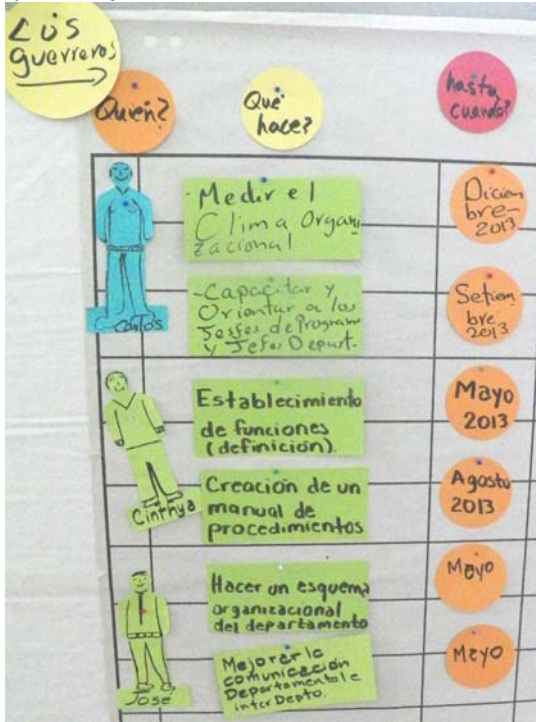 Los
guerreros
Quien?
Qué
hace?
hasta
cuando?
Carlos
- Medir el
Clima Organi
zacional
Diciem
bre-
2013
- Capacitar y
Orientar a los
Jesfes de Program
y Jefes Depart.
Setiem
bre-
2013
Cinthya
Establecimiento
de funciones
(definición).
Mayo
2013
Creación de un
manual de
procedimientos
Agosto
2013
José
Hacer un esquema
organizacional
del departamento
Mayo
Mejorar la
comunicación
Departamental e
interDepto.
Mayo